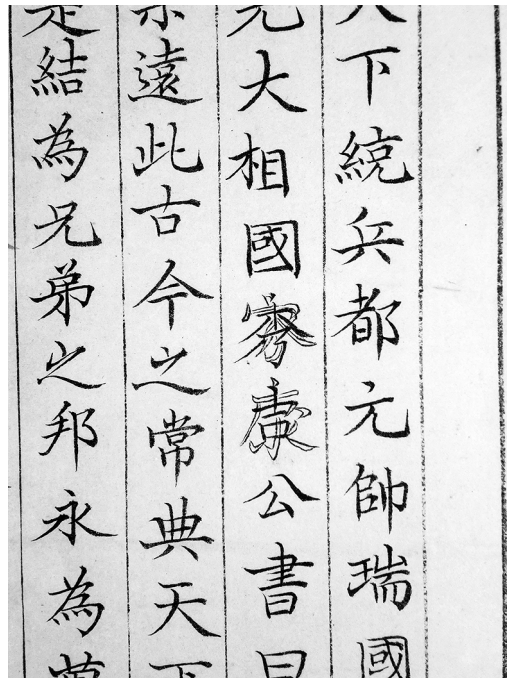 下統兵都元帥瑞國
大相國公書曰
遠此古今之常典天下
結為兄弟之邦永為